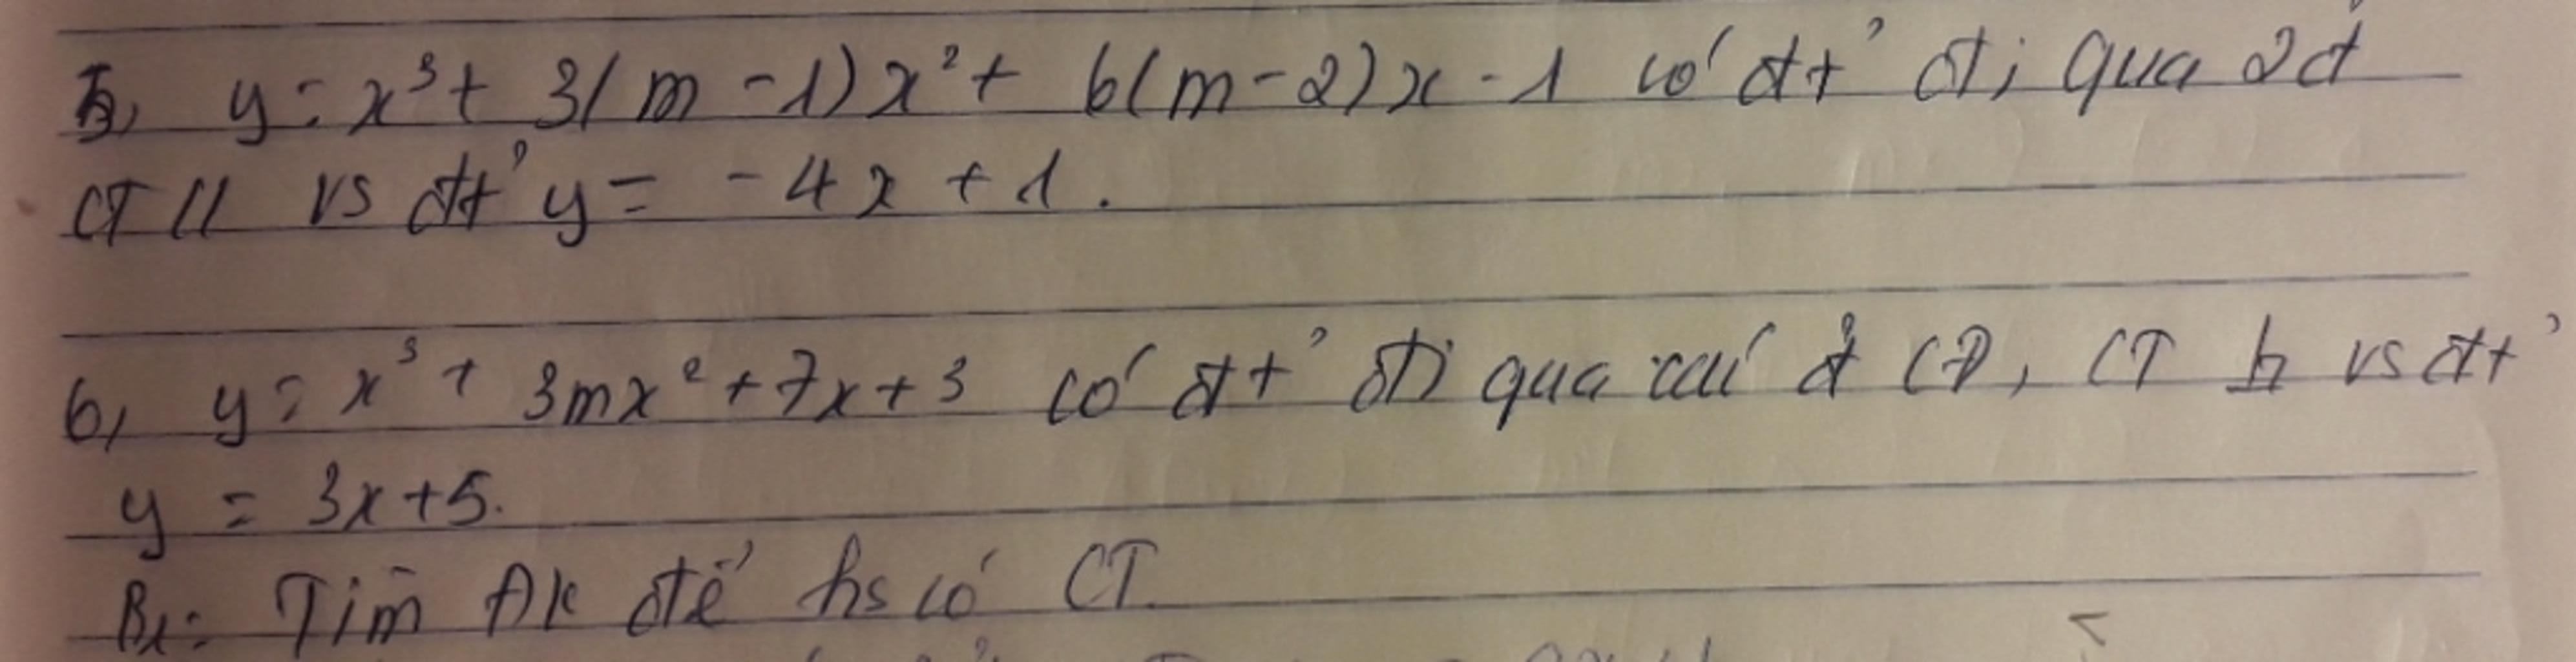 5, y = x³ + 3(m - 1)x² + 6(m - 2)x - 1 có đt' đi qua 2đ
CT // vs đt' y = - 4x + 1.
6, y = x³ + 3mx² + 7x + 3 có đt' đi qua các đ CĐ, CT vs đt'
y = 3x + 5.
B1: Tìm ĐK để hs có CT.